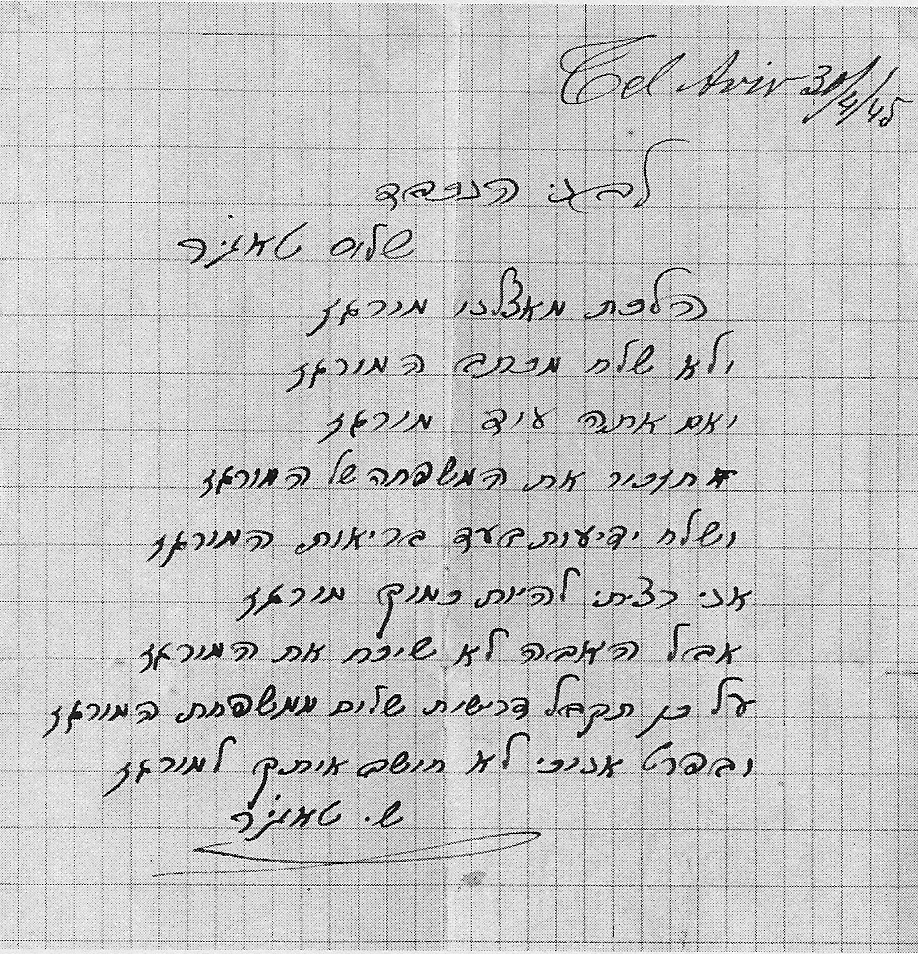 Tel Aviv 30/4/45
לבני הנכבד
שלום טאג'ר
הלכת מאצלנו מורגז
ולא שלח מכתב המורגז
ואם אתה עוד מורגז
תזכיר את המשפחה של המורגז
ושלח ידיעות בעד בריאות המורגז
אני רציתי להיות כמוך מורגז
אבל האבה לא שיכח את המורגז
על כן תקבל דרישית שלום ממשפחת המורגז
ובפרט אנכי לא חושב אותך למורגז
ש. טאג'ר